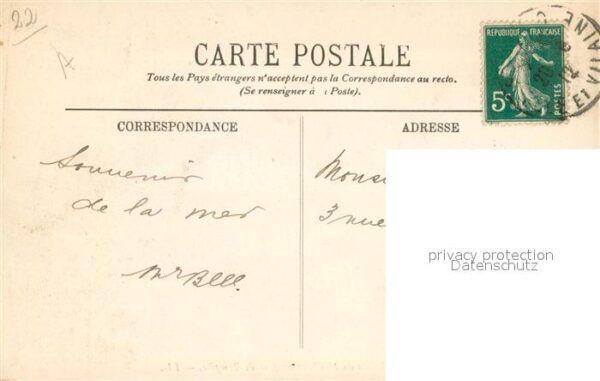 22
A
CARTE POSTALE
Tous les Pays étrangers n'acceptent pas la Correspondance au recto.
(Se renseigner à ı Poste).
REPUBLIQUE FRANÇAISE
5c
POSTES
ET VILAINE
CORRESPONDANCE
ADRESSE
Souvenir
de la mer
Monsi
3 rue
privacy protection
Datenschutz